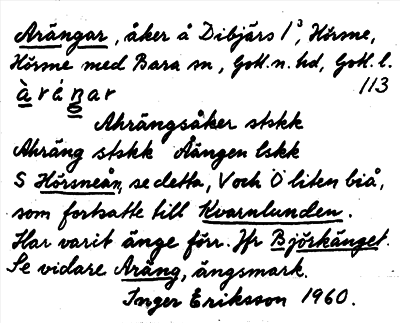 Arängar, åker å Dibjärs 1³, Hörsne,
Hörsne med Bara sn, Gotl. n. hd, Gotl. l.
113
à r á n a r
Ahrängsåker stskk
Ahräng stskk Åängen lskk
S Hörsneån, se detta, V och Ö liten biå,
som fortsatte till Kvarnlunden.
Har varit änge förr. Jfr Björkänget.
Se vidare Aräng, ängsmark.
Inger Eriksson 1960.